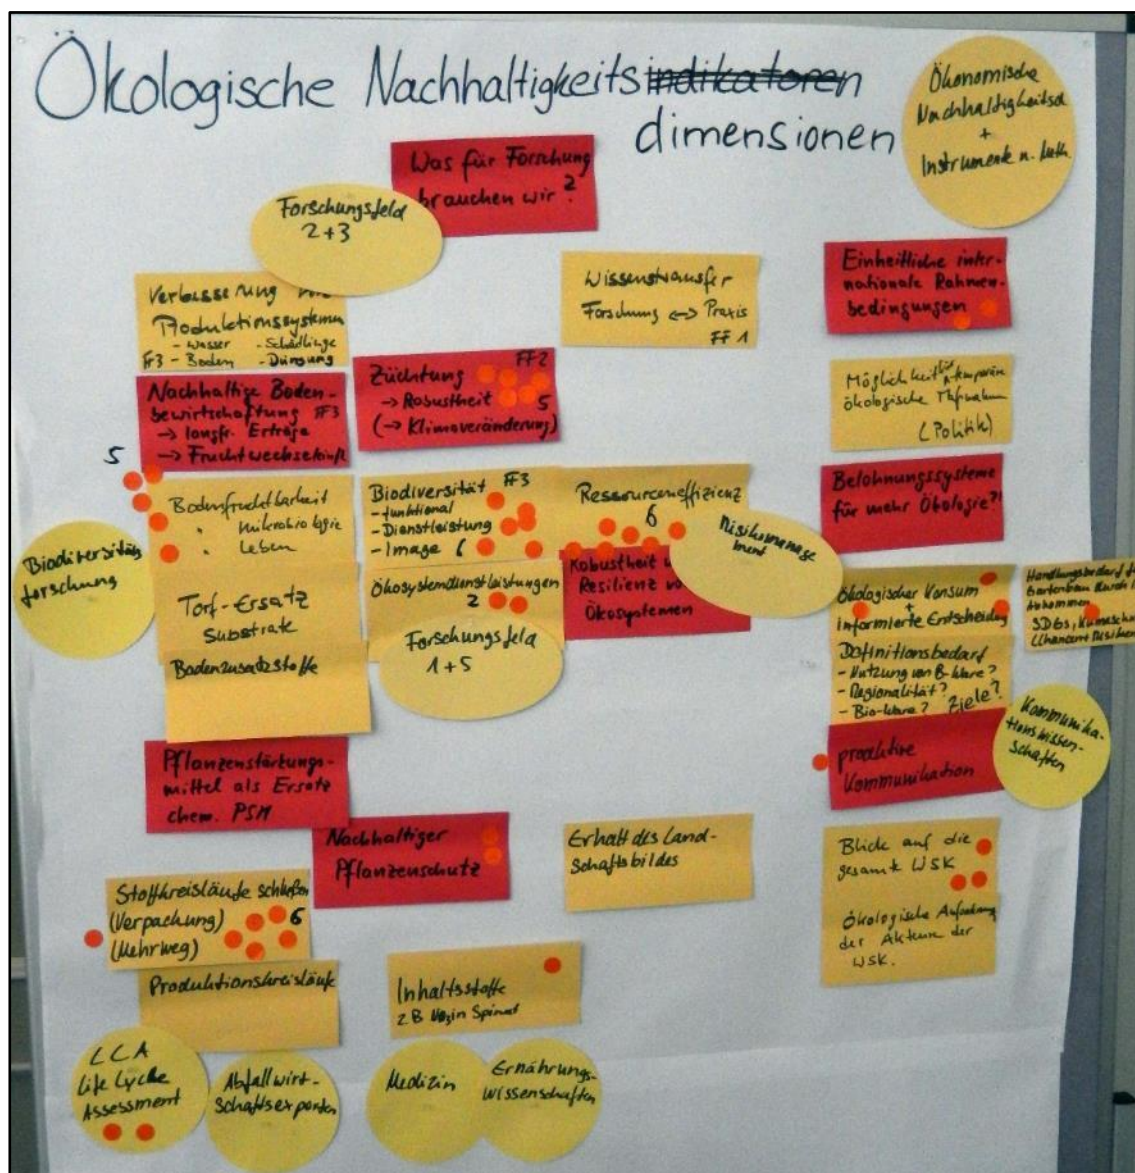 Ökologische Nachhaltigkeitsindikatoren
dimensionen
Ökonomische
+
Instrumente u.
Was für Forschung
brauchen wir?
Forschungsfeld
2+3
Verbesserung
Produktionssystemen
- Wasser - Schädlinge
FF3 - Boden - Düngung
Wissenstransfer
Forschung <-> Praxis
FF 1
Einheitliche inter-
nationale Rahmen-
bedingungen
Nachhaltige Boden-
bewirtschaftung FF3
→ langfr. Erträge
→
5
Züchtung FF2
→ Robustheit 5
(→ Klimaveränderung)
Möglichkeit
ökologische
(Politik)
Bodenfruchtbarkeit
• Mikrobiologie
• Leben
Biodiversität FF3
- funktional
- Dienstleistung
- Image 6
Ressourceneffizienz
6
Belohnungssysteme
für mehr Ökologie?!
Biodiversitäts
forschung
Risikomanage
ment
Torf-Ersatz
Substrate
Ökosystemdienstleistungen
2
Robustheit
Resilienz
Ökosystemen
Ökologischer Konsum
+
informierte Entscheidung
Handlungsbedarf
Gartenbau durch
Abkommen
SDGs,
Bodenzusatzstoffe
Forschungsfeld
1+5
Definitionsbedarf
- Nutzung von B-Ware?
- Regionalität?
- Bio-Ware? Ziele?
Pflanzenstärkungs-
mittel als Ersatz
chem. PSM
proaktive
Kommunikation
Kommunika-
tionswissen-
schaften
Nachhaltiger
Pflanzenschutz
Erhalt des Land-
schaftsbildes
Blick auf die
gesamte WSK
Stoffkreisläufe schließen
(Verpackung) 6
(Mehrweg)
Ökologische
der Akteure der
WSK.
Produktionskreisläufe
Inhaltsstoffe
z B
LCA
Life Cycle
Assessment
Abfallwirt-
schaftsexperten
Medizin
Ernährungs-
wissenschaften